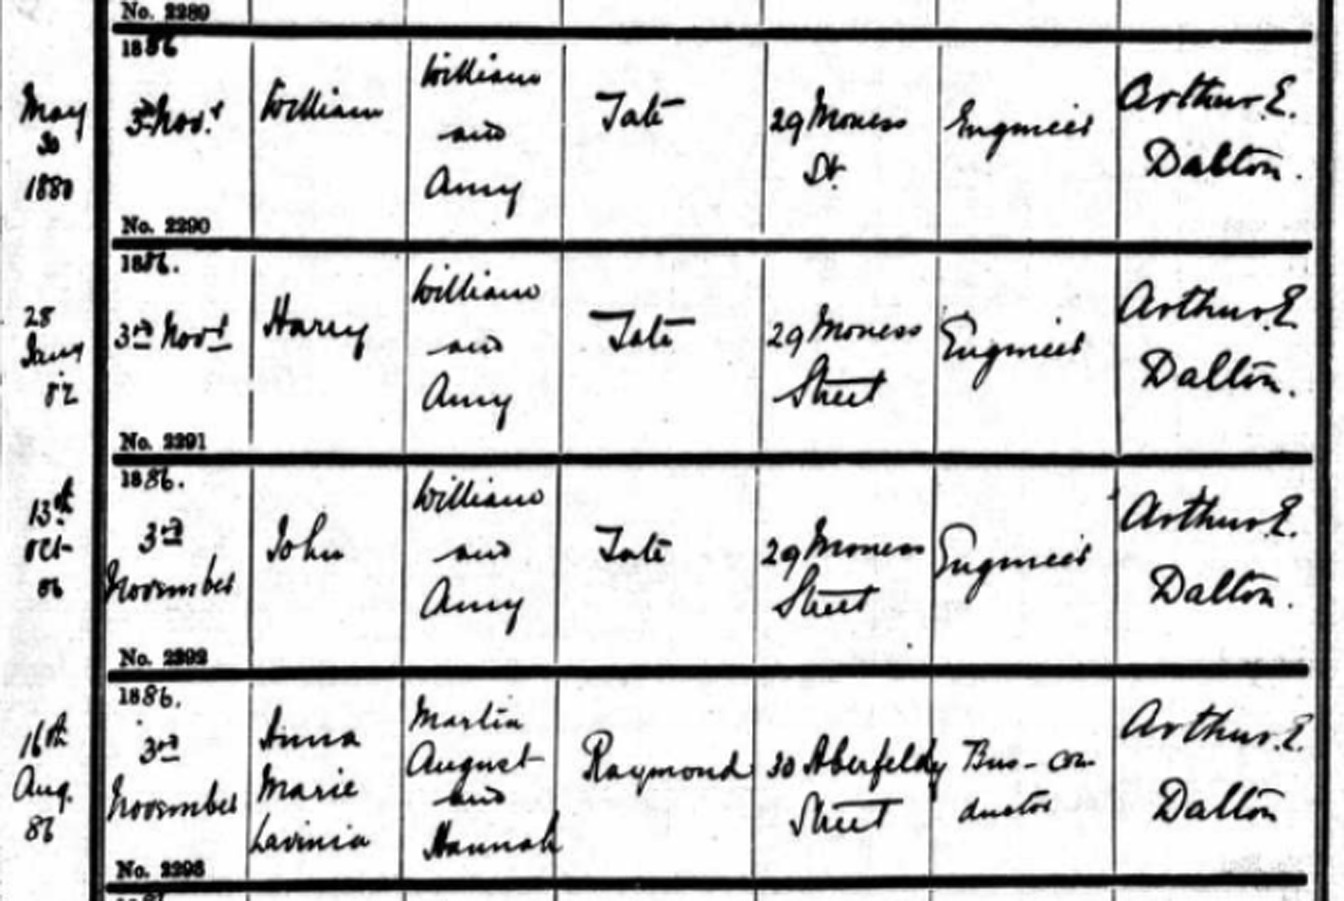 No. 2289
1886
May 30 1880
3rd Novr
William
William and Amy
Tate
29 Moness St.
Engineer
Arthur E. Dalton.
No. 2290
1886.
28 Jany 82
3rd Novr
Harry
William and Amy
Tate
29 Moness Street
Engineer
Arthur E Dalton.
No. 2291
1886.
13th Oct 86
3rd November
John
William and Amy
Tate
29 Moness Street
Engineer
Arthur E. Dalton.
No. 2292
1886.
16th Aug. 86
3rd November
Anna Marie Lavinia
Martin August and Hannah
Raymond
30 Aberfeldy Street
Bus-conductor
Arthur E. Dalton
No. 2293